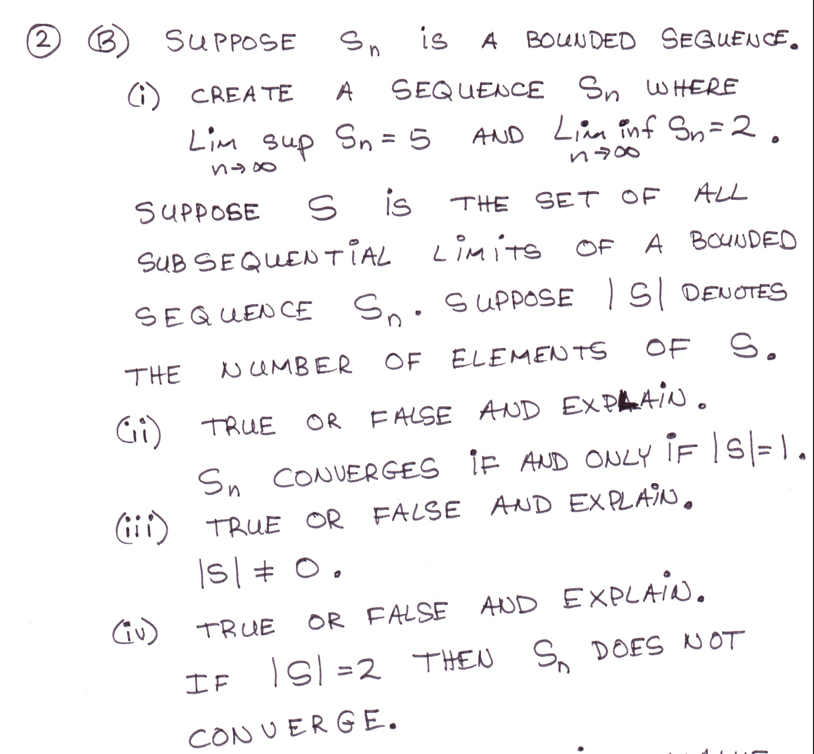 ② Ⓑ SUPPOSE Sn is A BOUNDED SEQUENCE.
(i) CREATE A SEQUENCE Sn WHERE
Lim sup Sn = 5 AND Lim inf Sn = 2.
n→∞ n→∞
SUPPOSE S is THE SET OF ALL
SUBSEQUENTiAL LiMiTS OF A BOUNDED
SEQUENCE Sn. SUPPOSE |S| DENOTES
THE NUMBER OF ELEMENTS OF S.
(ii) TRUE OR FALSE AND EXPLAiN.
Sn CONVERGES iF AND ONLY iF |S|=1.
(iii) TRUE OR FALSE AND EXPLAiN.
|S| ≠ 0.
(iv) TRUE OR FALSE AND EXPLAiN.
IF |S|=2 THEN Sn DOES NOT
CONVERGE.